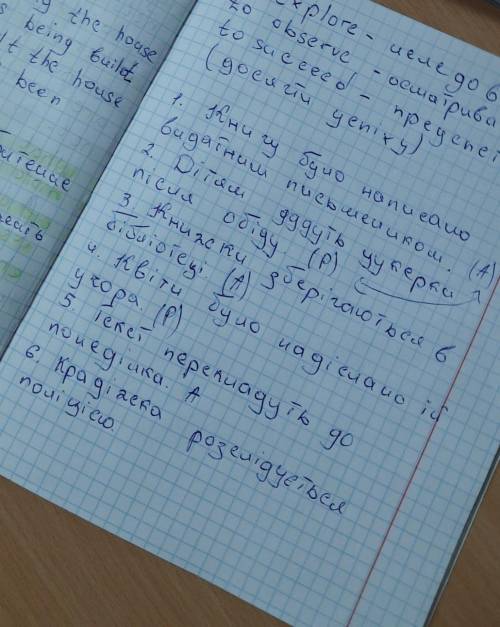 the house
being build
the house
been
explore - исследов
to observe - осматрива
to succeed - преуспе
(досягти успіху)
1. Книгу було написано
видатним письменником. (A)
2. Дітям дадуть цукерки
після обіду (P)
3. Книжки зберігаються в
бібліотеці (A)
4. Квіти було надіслано їй
учора. (P)
5. Текст перекладуть до
понеділка. A
6. Крадіжка розслідується
поліцією.